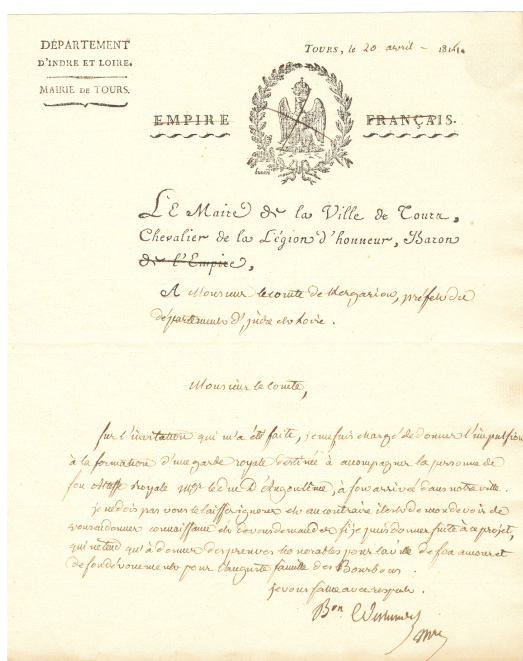 DÉPARTEMENT
D'INDRE ET LOIRE.
MAIRIE DE TOURS.
TOURS, le 20 avril 1814.
EMPIRE FRANÇAIS.
LE Maire de la Ville de Tours,
Chevalier de la Légion d'honneur, Baron
de l'Empire,
A Monsieur le comte de Kergariou, préfet du
département d'indre et Loire.
Monsieur le comte,
sur l'invitation qui m'a été faite, je me suis chargé de donner l'impulsion
à la formation d'une garde royale destinée à accompagner la personne de
son Altesse royale Mgr le duc D'Angoulême, à son arrivée dans notre ville.
je ne dois pas vous le laisser ignorer et au contraire il est de mon devoir de
vous en donner connaissance et de vous demander si je puis donner suite à ce projet,
qui ne tend qu'à donner des preuves honorables pour la ville de son amour et
de son dévouement pour l'auguste famille des Bourbons.
je vous salue avec respect.
Bon